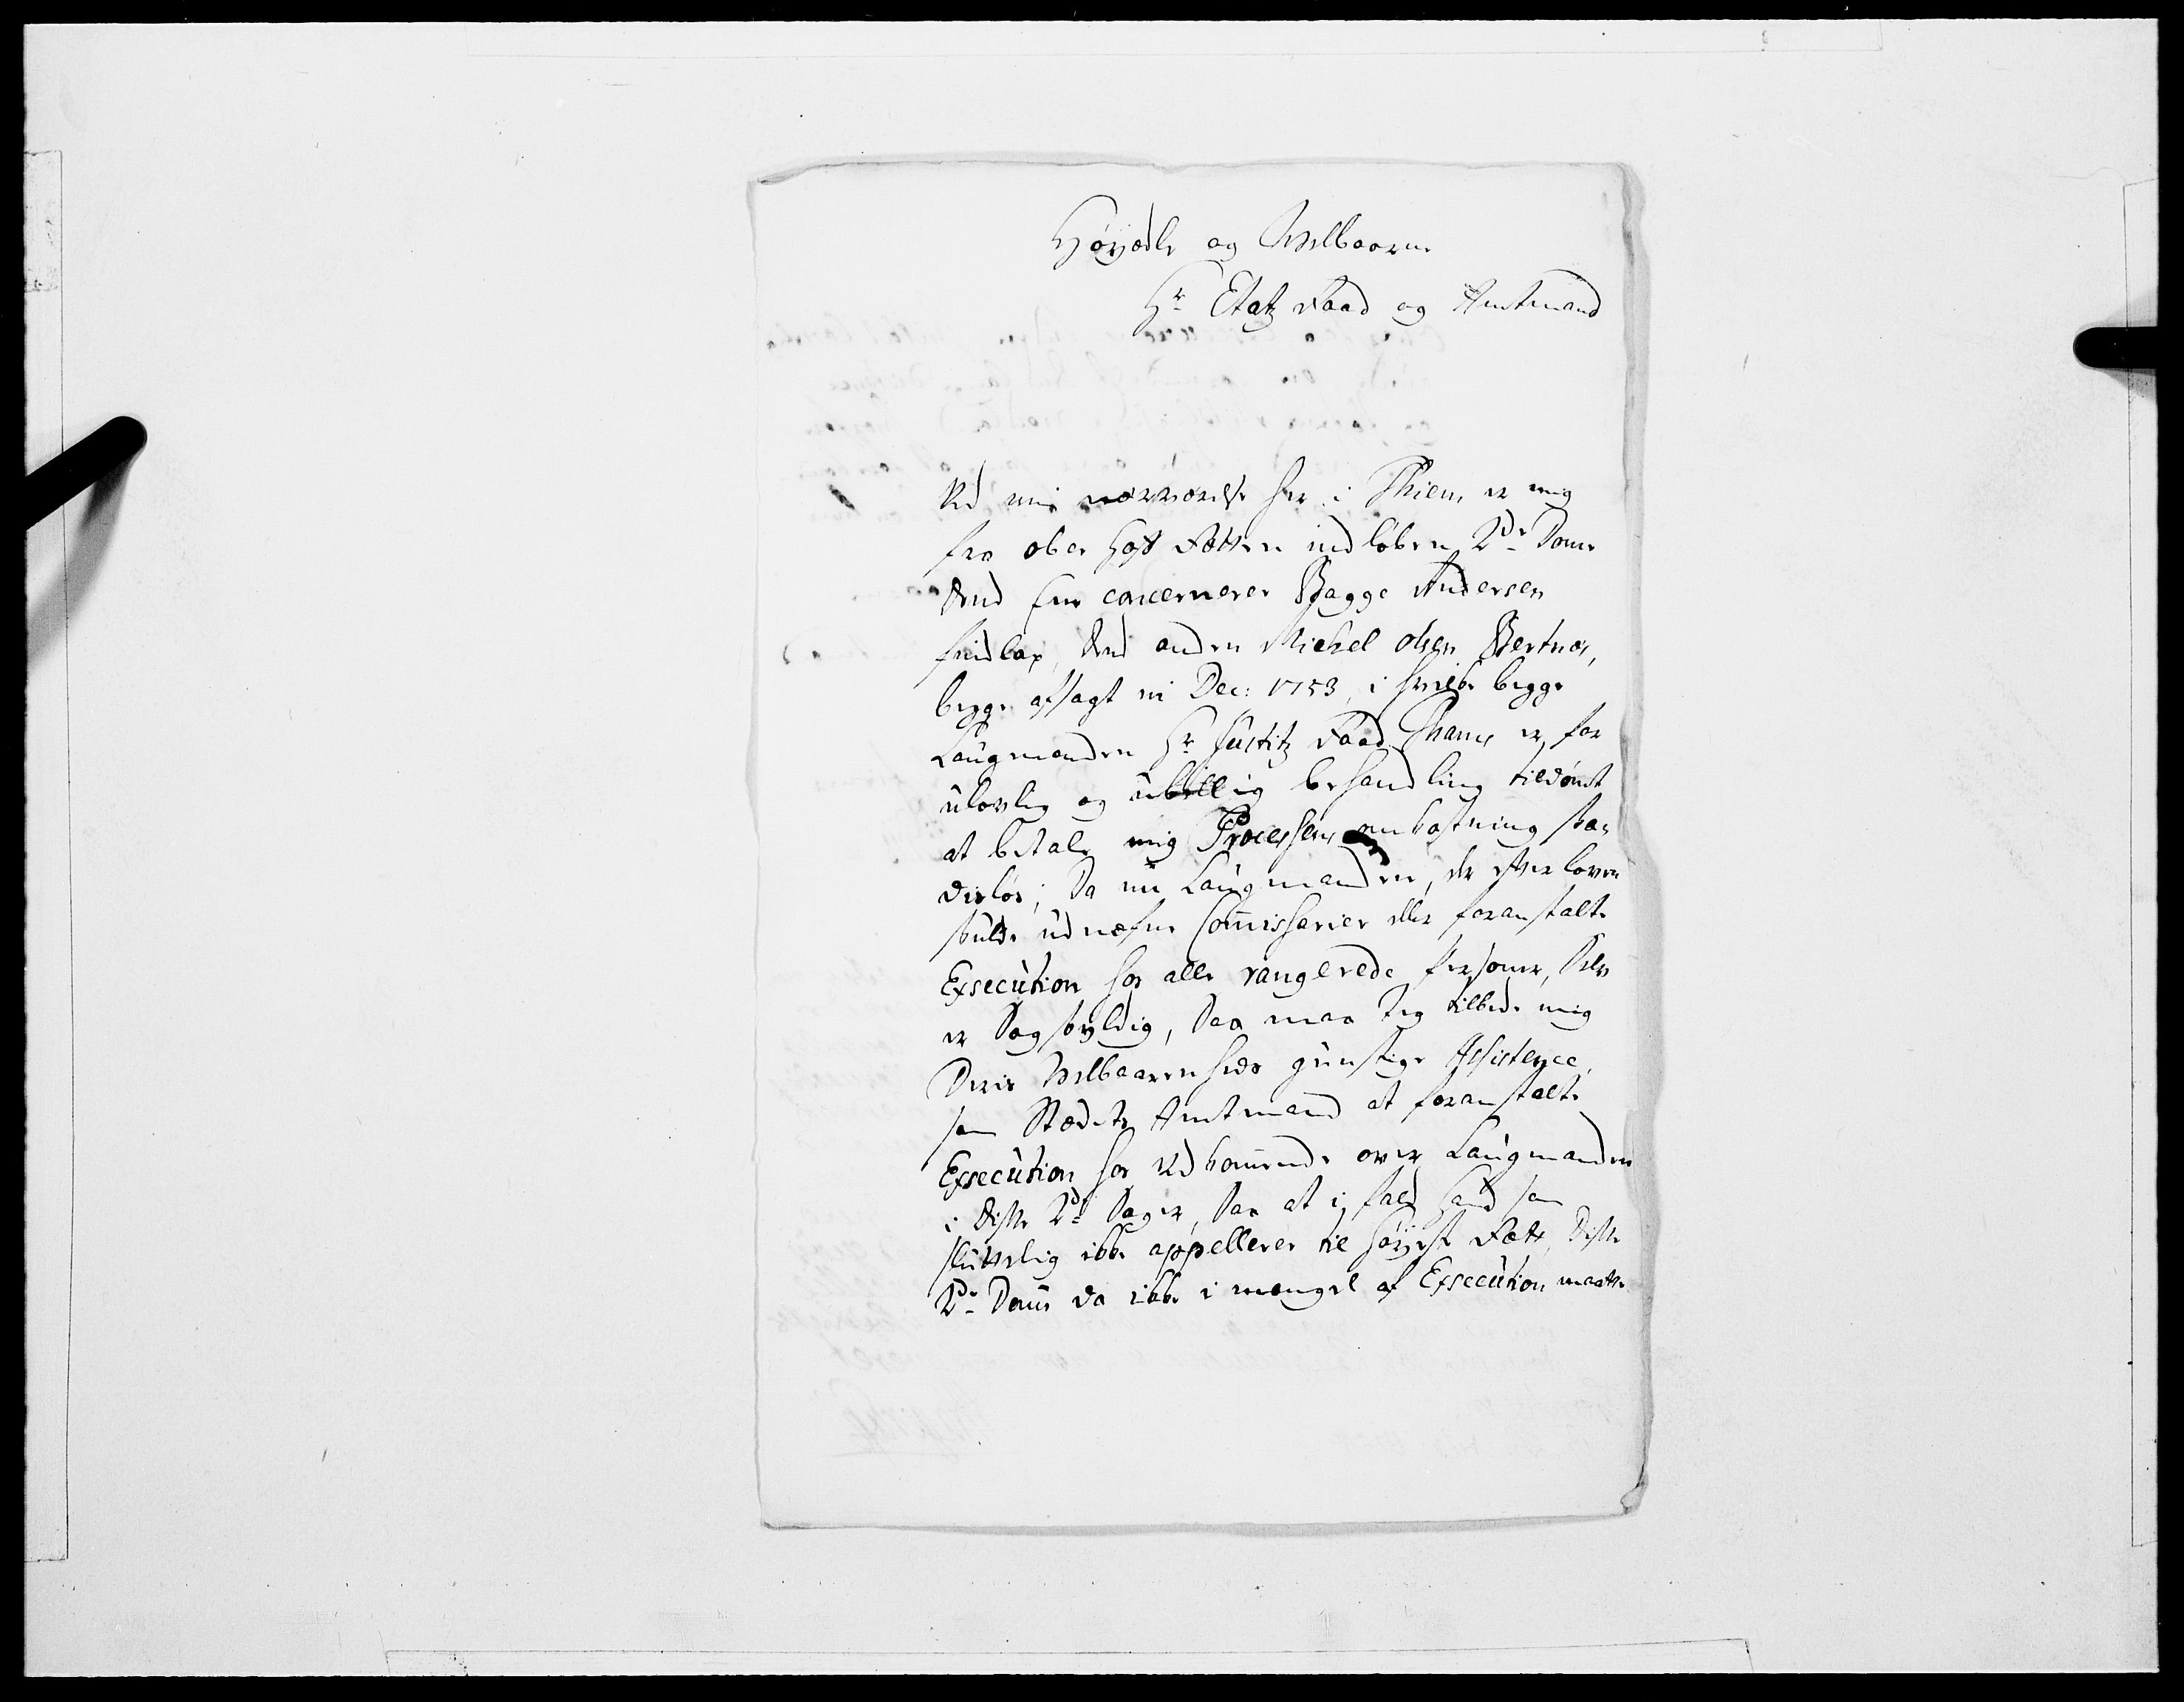 Høyædle og Velbaarne
Hr Etatz Raad og Amtmand
Ved min nærværelse her i Thiem, er mig
fra ober Hoff Rætten indløben 2de Domme
dend eene concernerer Bagge Andersen
Findlax, dend anden Michel olsen Bertnæs,
begge afsagt in Dec: 1753, i hvilke begge
Laugmanden Hr Justitz Raad Thams er for
ulovlig og ubillig behandling tildømt
at betale mig Processens omkostning ska-
desløs; Da nu Laugmanden, der efter loven
skulde udnæfne Commissarier eller foranstalte
Execution hos alle rangerede Persohner, Selv
er Sagskyldig, Saa maa Jeg tilbede mig
Deris Velbaarenheds gunstige Assistence,
som Stædets Amtmand at foranstalte
Execution hos Vedkommende over Laugmanden
i disse 2de Sager, Saa at i fald hand som
skutzlig ikke appellerer til høyeste Ræt, disse
2de Domme da ikke i mangel af Execution maatte